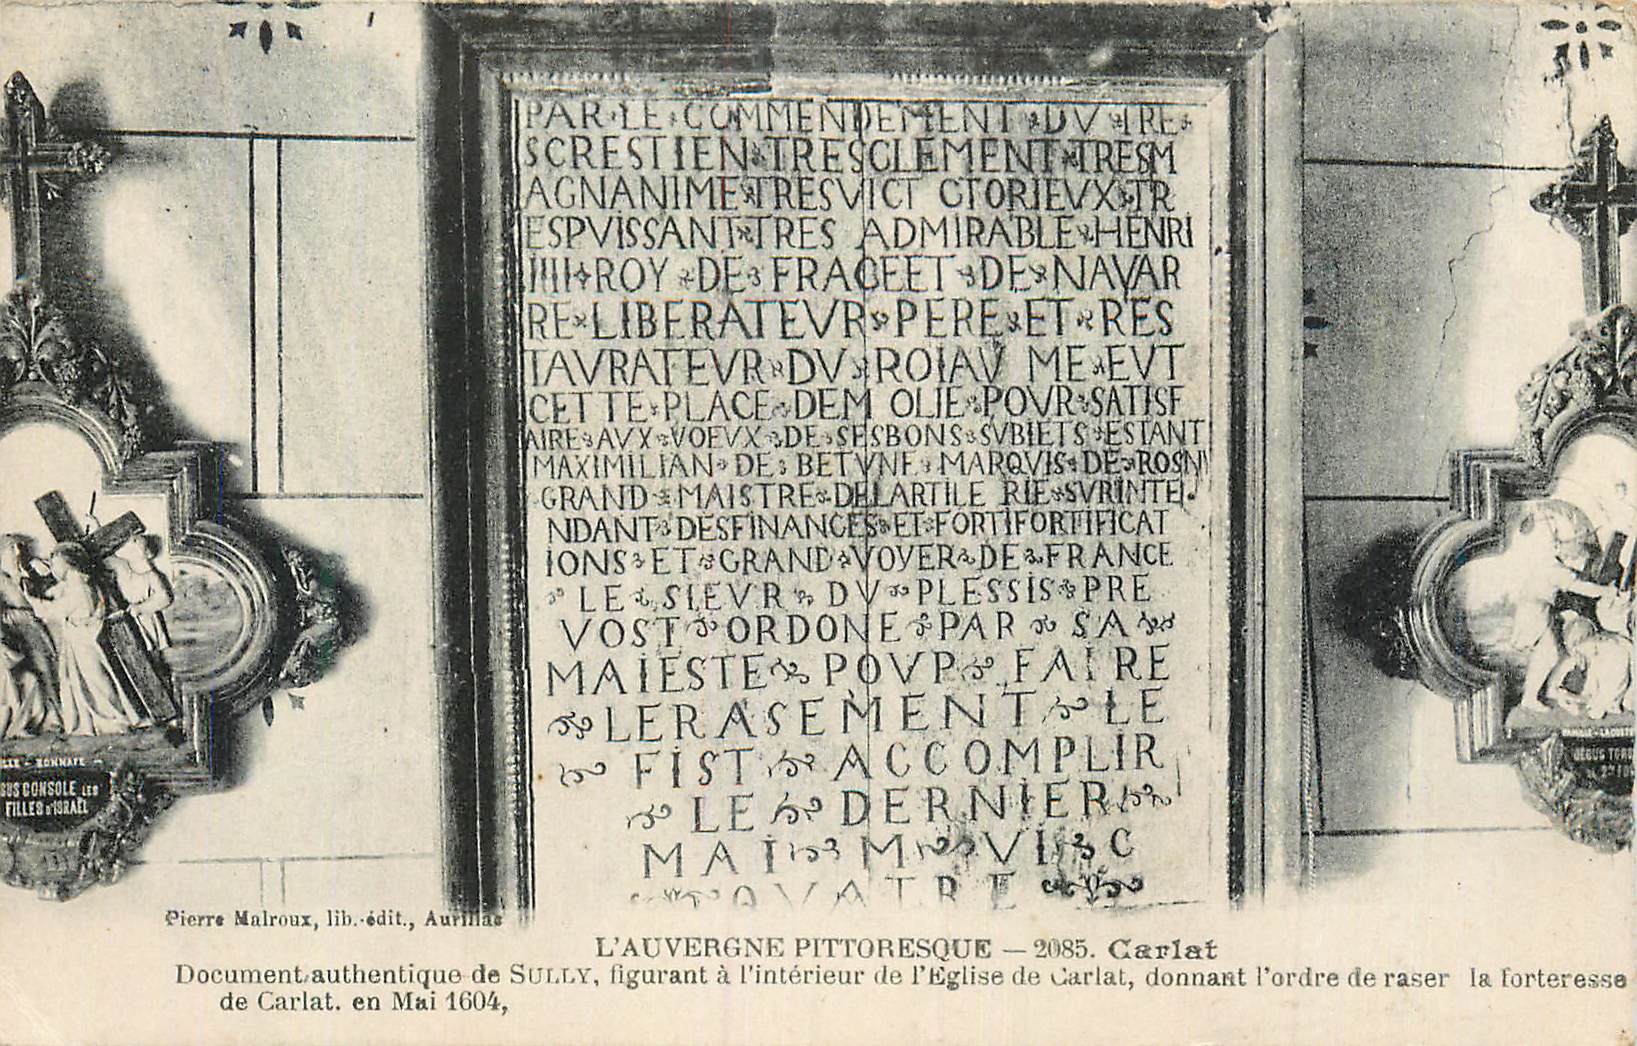 PAR LE COMMENDEMENT DV TRE
SCRESTIEN TRESCLEMENT TRESM
AGNANIME TRESVICT CTORIEVX TR
ESPVISSANT TRES ADMIRABLE HENRI
IIII ROY DE FRACEET DE NAVAR
RE LIBERATEVR PERE ET RES
TAVRATEVR DV ROIAV ME EVT
CETTE PLACE DEM OLIE POVR SATISF
AIRE AVX VOEVX DE SESBONS SVBIETS ESTANT
MAXIMILIAN DE BETVNE MARQVIS DE ROSNI
GRAND MAISTRE DELARTILE RIE SVRINTE
NDANT DESFINANCES ET FORTIFORTIFICAT
IONS ET GRAND VOYER DE FRANCE
LE SIEVR DV PLESSIS PRE
VOST ORDONE PAR SA
MAIESTE POVP FAIRE
LERASEMENT LE
FIST ACCOMPLIR
LE DERNIER
MAI M VI C
QVATRE
BONNAFE
SUS CONSOLE LES
FILLES D'ISRAËL
JESUS TOMB
Pierre Malroux, lib.-édit., Aurillac
L'AUVERGNE PITTORESQUE — 2085. Carlat
Document authentique de SULLY, figurant à l'intérieur de l'Eglise de Carlat, donnant l'ordre de raser la forteresse
de Carlat. en Mai 1604,